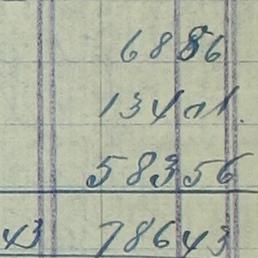 6886
13401.
58356
43 78643